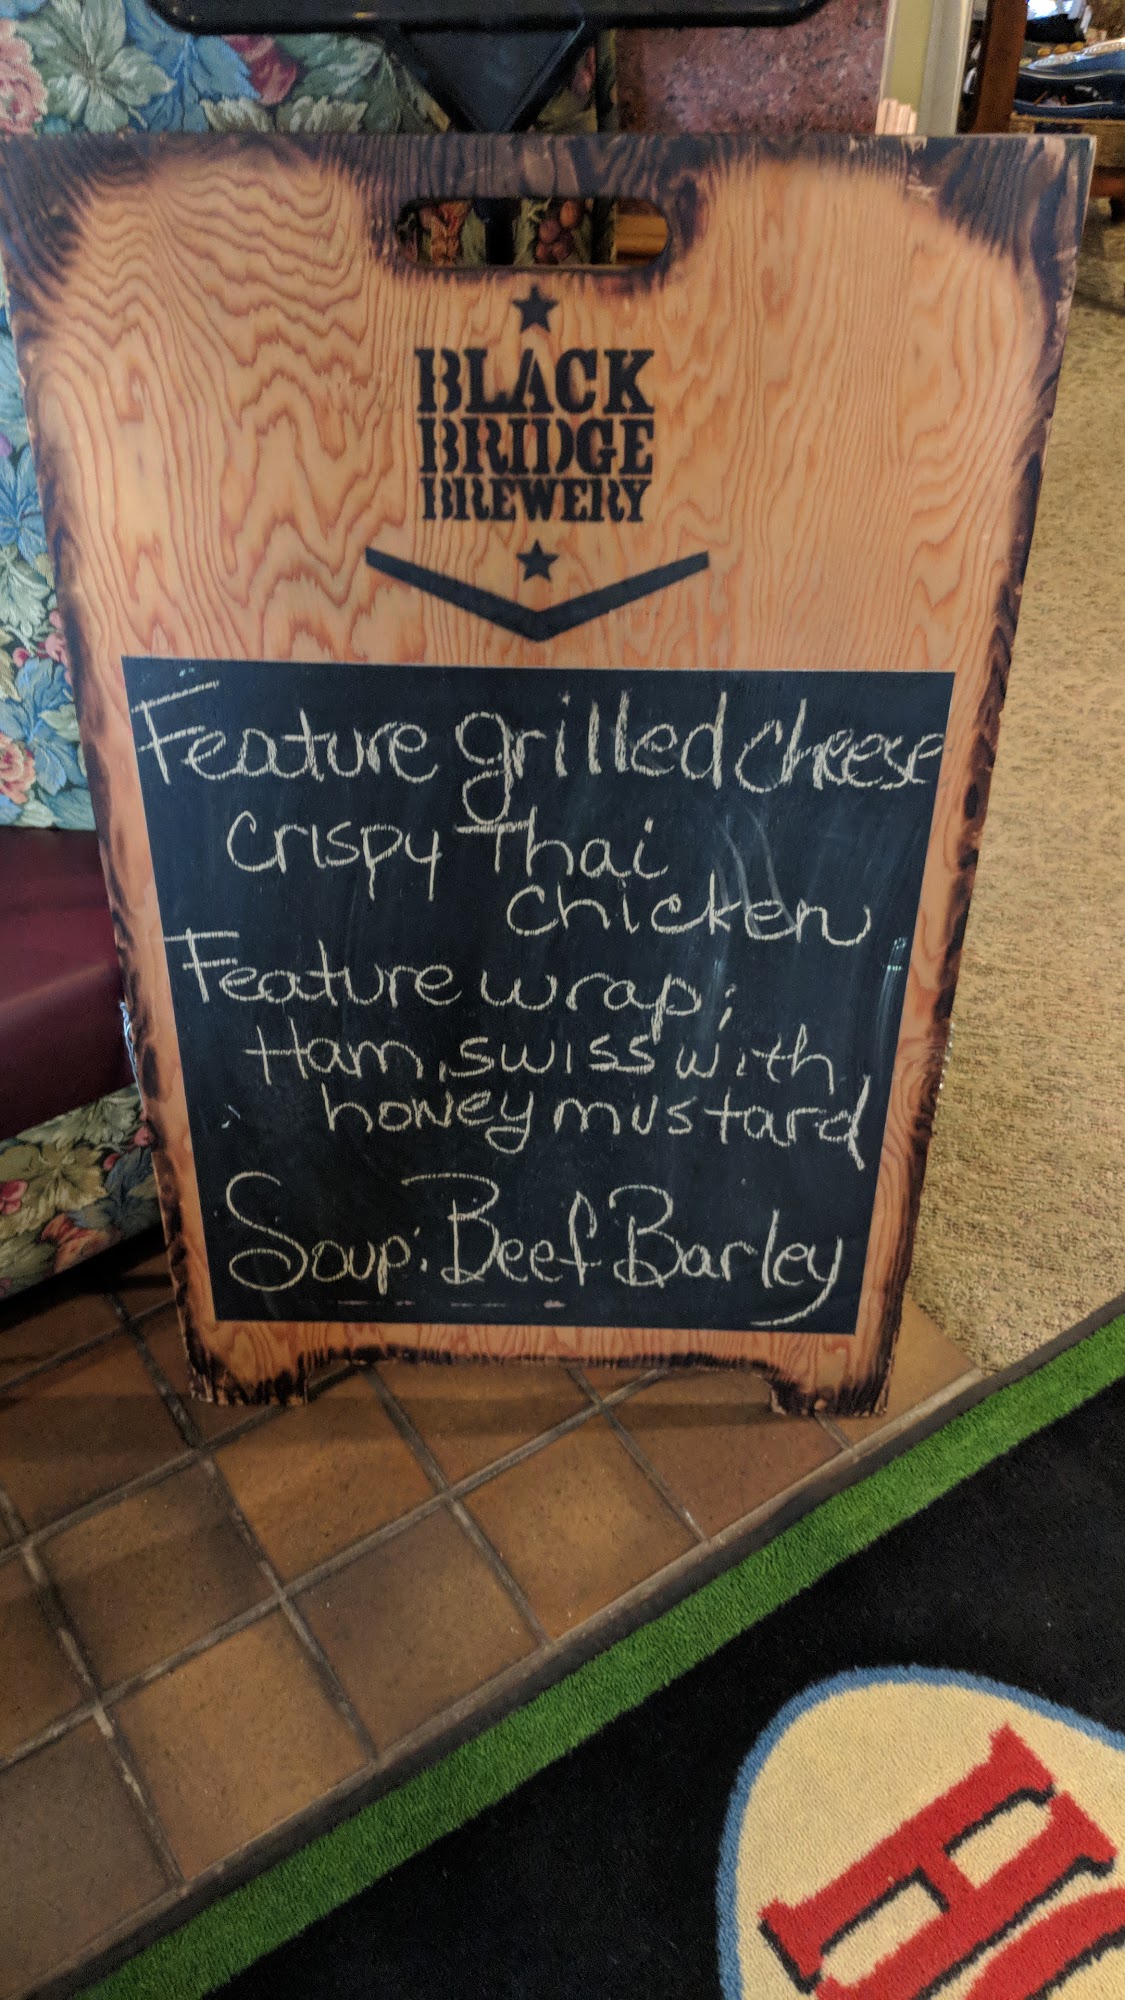 BLACK
BRIDGE
BREWERY
Feature grilled cheese
Crispy Thai
Chicken
Feature wrap:
Ham, swiss with
honey mustard
Soup: Beef Barley
H